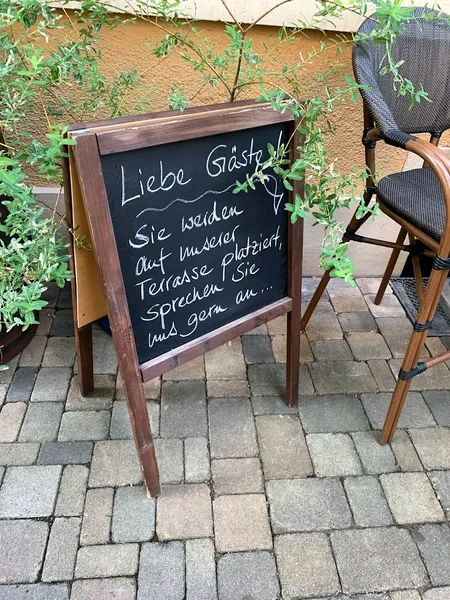 Liebe Gäste!
Sie werden
auf unserer
Terrasse platziert,
sprechen Sie
uns gern an...